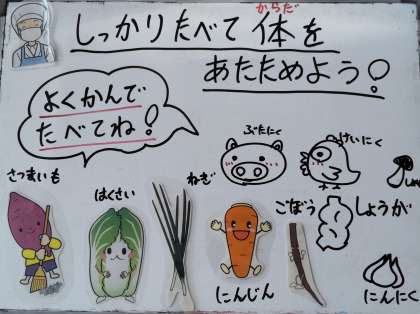 しっかりたべて体を
からだ
あたためよう!
よくかんで
たべてね!
ぶたにく
けいにく
さつまいも
はくさい
ねぎ
ごぼう
しょうが
にんじん
にんにく